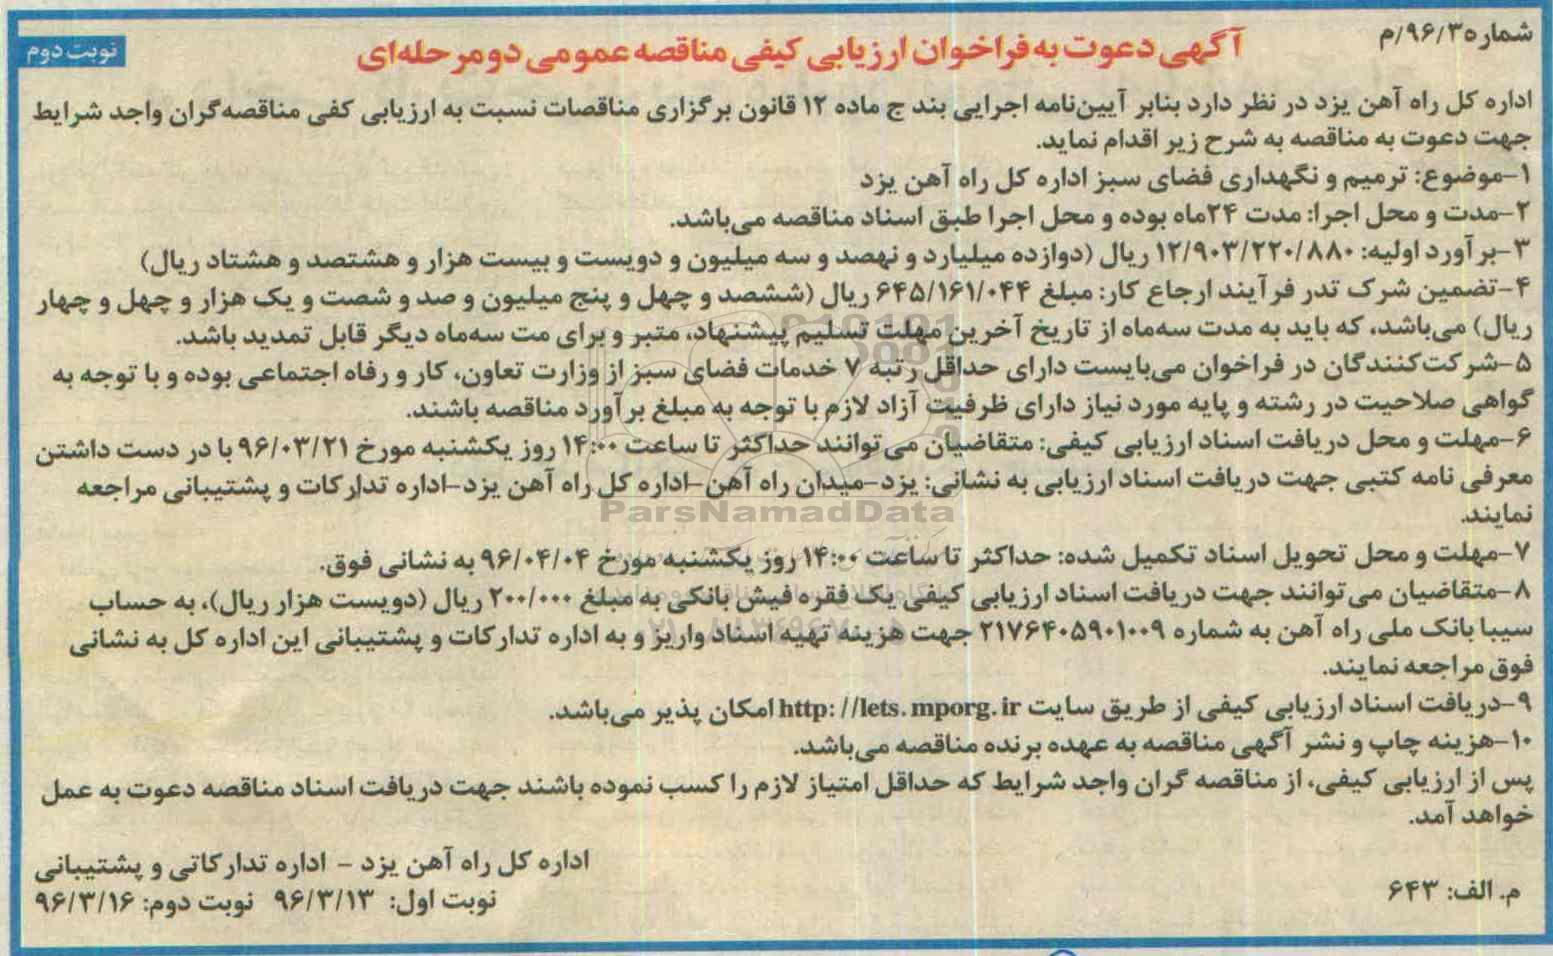 شماره۹۶/۳/م
آگهی دعوت به فراخوان ارزیابی کیفی مناقصه عمومی دو مرحله‌ای
نوبت دوم
اداره کل راه آهن یزد در نظر دارد بنابر آیین‌نامه اجرایی بند ج ماده ۱۲ قانون برگزاری مناقصات نسبت به ارزیابی کفی مناقصه‌گران واجد شرایط
جهت دعوت به مناقصه به شرح زیر اقدام نماید.
۱-موضوع: ترمیم و نگهداری فضای سبز اداره کل راه آهن یزد
۲-مدت و محل اجرا: مدت ۲۴ماه بوده و محل اجرا طبق اسناد مناقصه می‌باشد.
۳-برآورد اولیه: ۱۲/۹۰۳/۲۲۰/۸۸۰ ریال (دوازده میلیارد و نهصد و سه میلیون و دویست و بیست هزار و هشتصد و هشتاد ریال)
۴-تضمین شرک تدر فرآیند ارجاع کار: مبلغ ۶۴۵/۱۶۱/۰۴۴ ریال (ششصد و چهل و پنج میلیون و صد و شصت و یک هزار و چهل و چهار
ریال) می‌باشد، که باید به مدت سه‌ماه از تاریخ آخرین مهلت تسلیم پیشنهاد، متبر و برای مت سه‌ماه دیگر قابل تمدید باشد.
۵-شرکت‌کنندگان در فراخوان می‌بایست دارای حداقل رتبه ۷ خدمات فضای سبز از وزارت تعاون، کار و رفاه اجتماعی بوده و با توجه به
گواهی صلاحیت در رشته و پایه مورد نیاز دارای ظرفیت آزاد لازم با توجه به مبلغ برآورد مناقصه باشند.
۶-مهلت و محل دریافت اسناد ارزیابی کیفی: متقاضیان می‌توانند حداکثر تا ساعت ۱۴:۰۰ روز یکشنبه مورخ ۹۶/۰۳/۲۱ با در دست داشتن
معرفی نامه کتبی جهت دریافت اسناد ارزیابی به نشانی: یزد-میدان راه آهن-اداره کل راه آهن یزد-اداره تدارکات و پشتیبانی مراجعه
نمایند.
ParsNamadData
۷-مهلت و محل تحویل اسناد تکمیل شده: حداکثر تا ساعت ۱۴:۰۰ روز یکشنبه مورخ ۹۶/۰۴/۰۴ به نشانی فوق.
۸-متقاضیان می‌توانند جهت دریافت اسناد ارزیابی کیفی یک فقره فیش بانکی به مبلغ ۲۰۰/۰۰۰ ریال (دویست هزار ریال)، به حساب
سیبا بانک ملی راه آهن به شماره ۲۱۷۶۴۰۵۹۰۱۰۰۹ جهت هزینه تهیه اسناد واریز و به اداره تدارکات و پشتیبانی این اداره کل به نشانی
فوق مراجعه نمایند.
۹-دریافت اسناد ارزیابی کیفی از طریق سایت http://lets.mporg.ir امکان پذیر می‌باشد.
۱۰-هزینه چاپ و نشر آگهی مناقصه به عهده برنده مناقصه می‌باشد.
پس از ارزیابی کیفی، از مناقصه گران واجد شرایط که حداقل امتیاز لازم را کسب نموده باشند جهت دریافت اسناد مناقصه دعوت به عمل
خواهد آمد.
اداره کل راه آهن یزد - اداره تدارکاتی و پشتیبانی
م. الف: ۶۴۳
نوبت اول: ۹۶/۳/۱۳ نوبت دوم: ۹۶/۳/۱۶